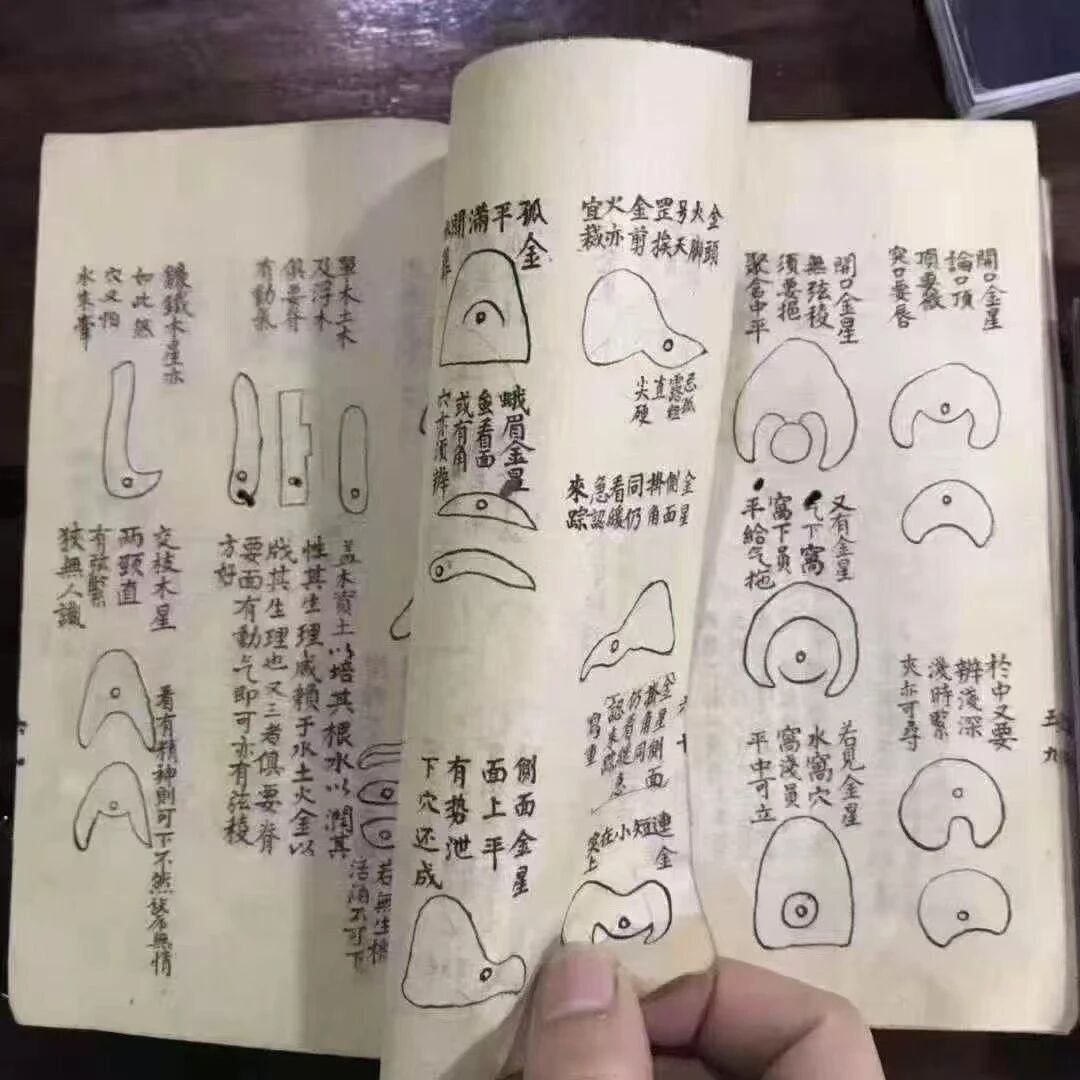 開口金星
論口頂
頂要
突口要唇
於中又要
辨淺深
淺時緊
夾亦可尋
五九
開口金星
無弦稜
須要挹
聚舍中平
又有金星
气下窩
窩下員
平給气拖
若見金星
水窩穴
窩淺員
平中可立
金頭
火脚
号天
罡挨
金剪
火亦
宜裁
忌孤
露粗
直硬
尖
金星
側面
掛角
同仍
看緩
急認
來踪
連金
短
小
在
突上
孤金
平
滿
開
蛾眉金星
並看面
或有角
穴亦須辨
側面金星
面上平
有势泄
下穴还成
單木土木
及浮木
俱要脊
有動氣
盖木資土以培其根水以潤其
性其生理咸賴于水土火金以
戕其生理也又三者俱要脊
要面有動气即可亦有弦稜
方好
若無生機
活涌不可下
鐮鈛木星亦
如此然
穴又怕
水來牽
交枝木星
两頭直
有弦緊
狹無人識
看有精神則可下不然無情